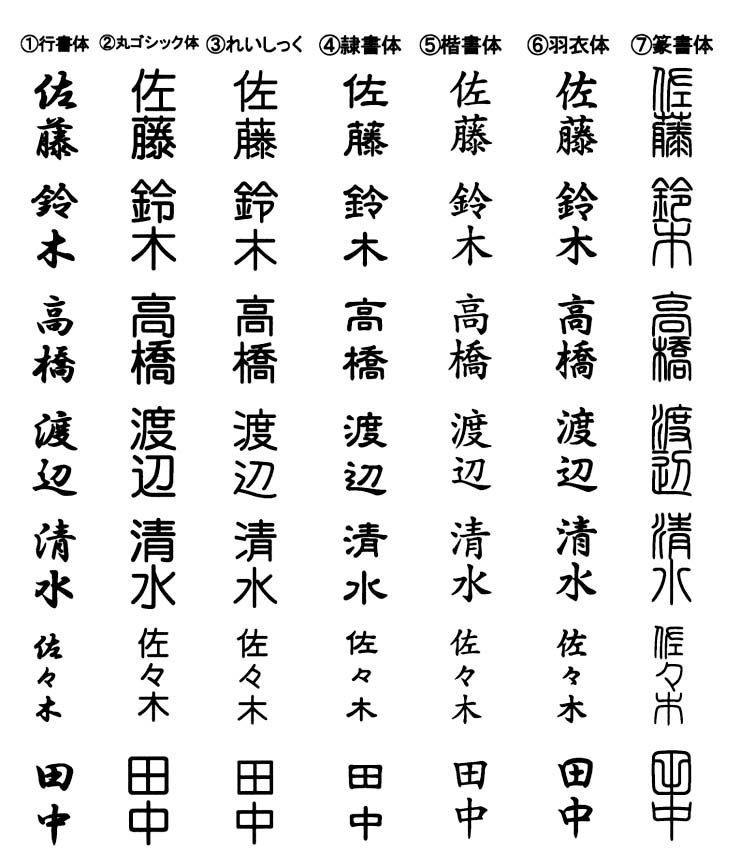 ①行書体 ②丸ゴシック体 ③れいしっく ④隷書体 ⑤楷書体 ⑥羽衣体 ⑦篆書体
佐藤 佐藤 佐藤 佐藤 佐藤 佐藤 佐藤
鈴木 鈴木 鈴木 鈴木 鈴木 鈴木 鈴木
高橋 高橋 高橋 高橋 高橋 高橋 高橋
渡辺 渡辺 渡辺 渡辺 渡辺 渡辺 渡辺
清水 清水 清水 清水 清水 清水 清水
佐々木 佐々木 佐々木 佐々木 佐々木 佐々木 佐々木
田中 田中 田中 田中 田中 田中 田中